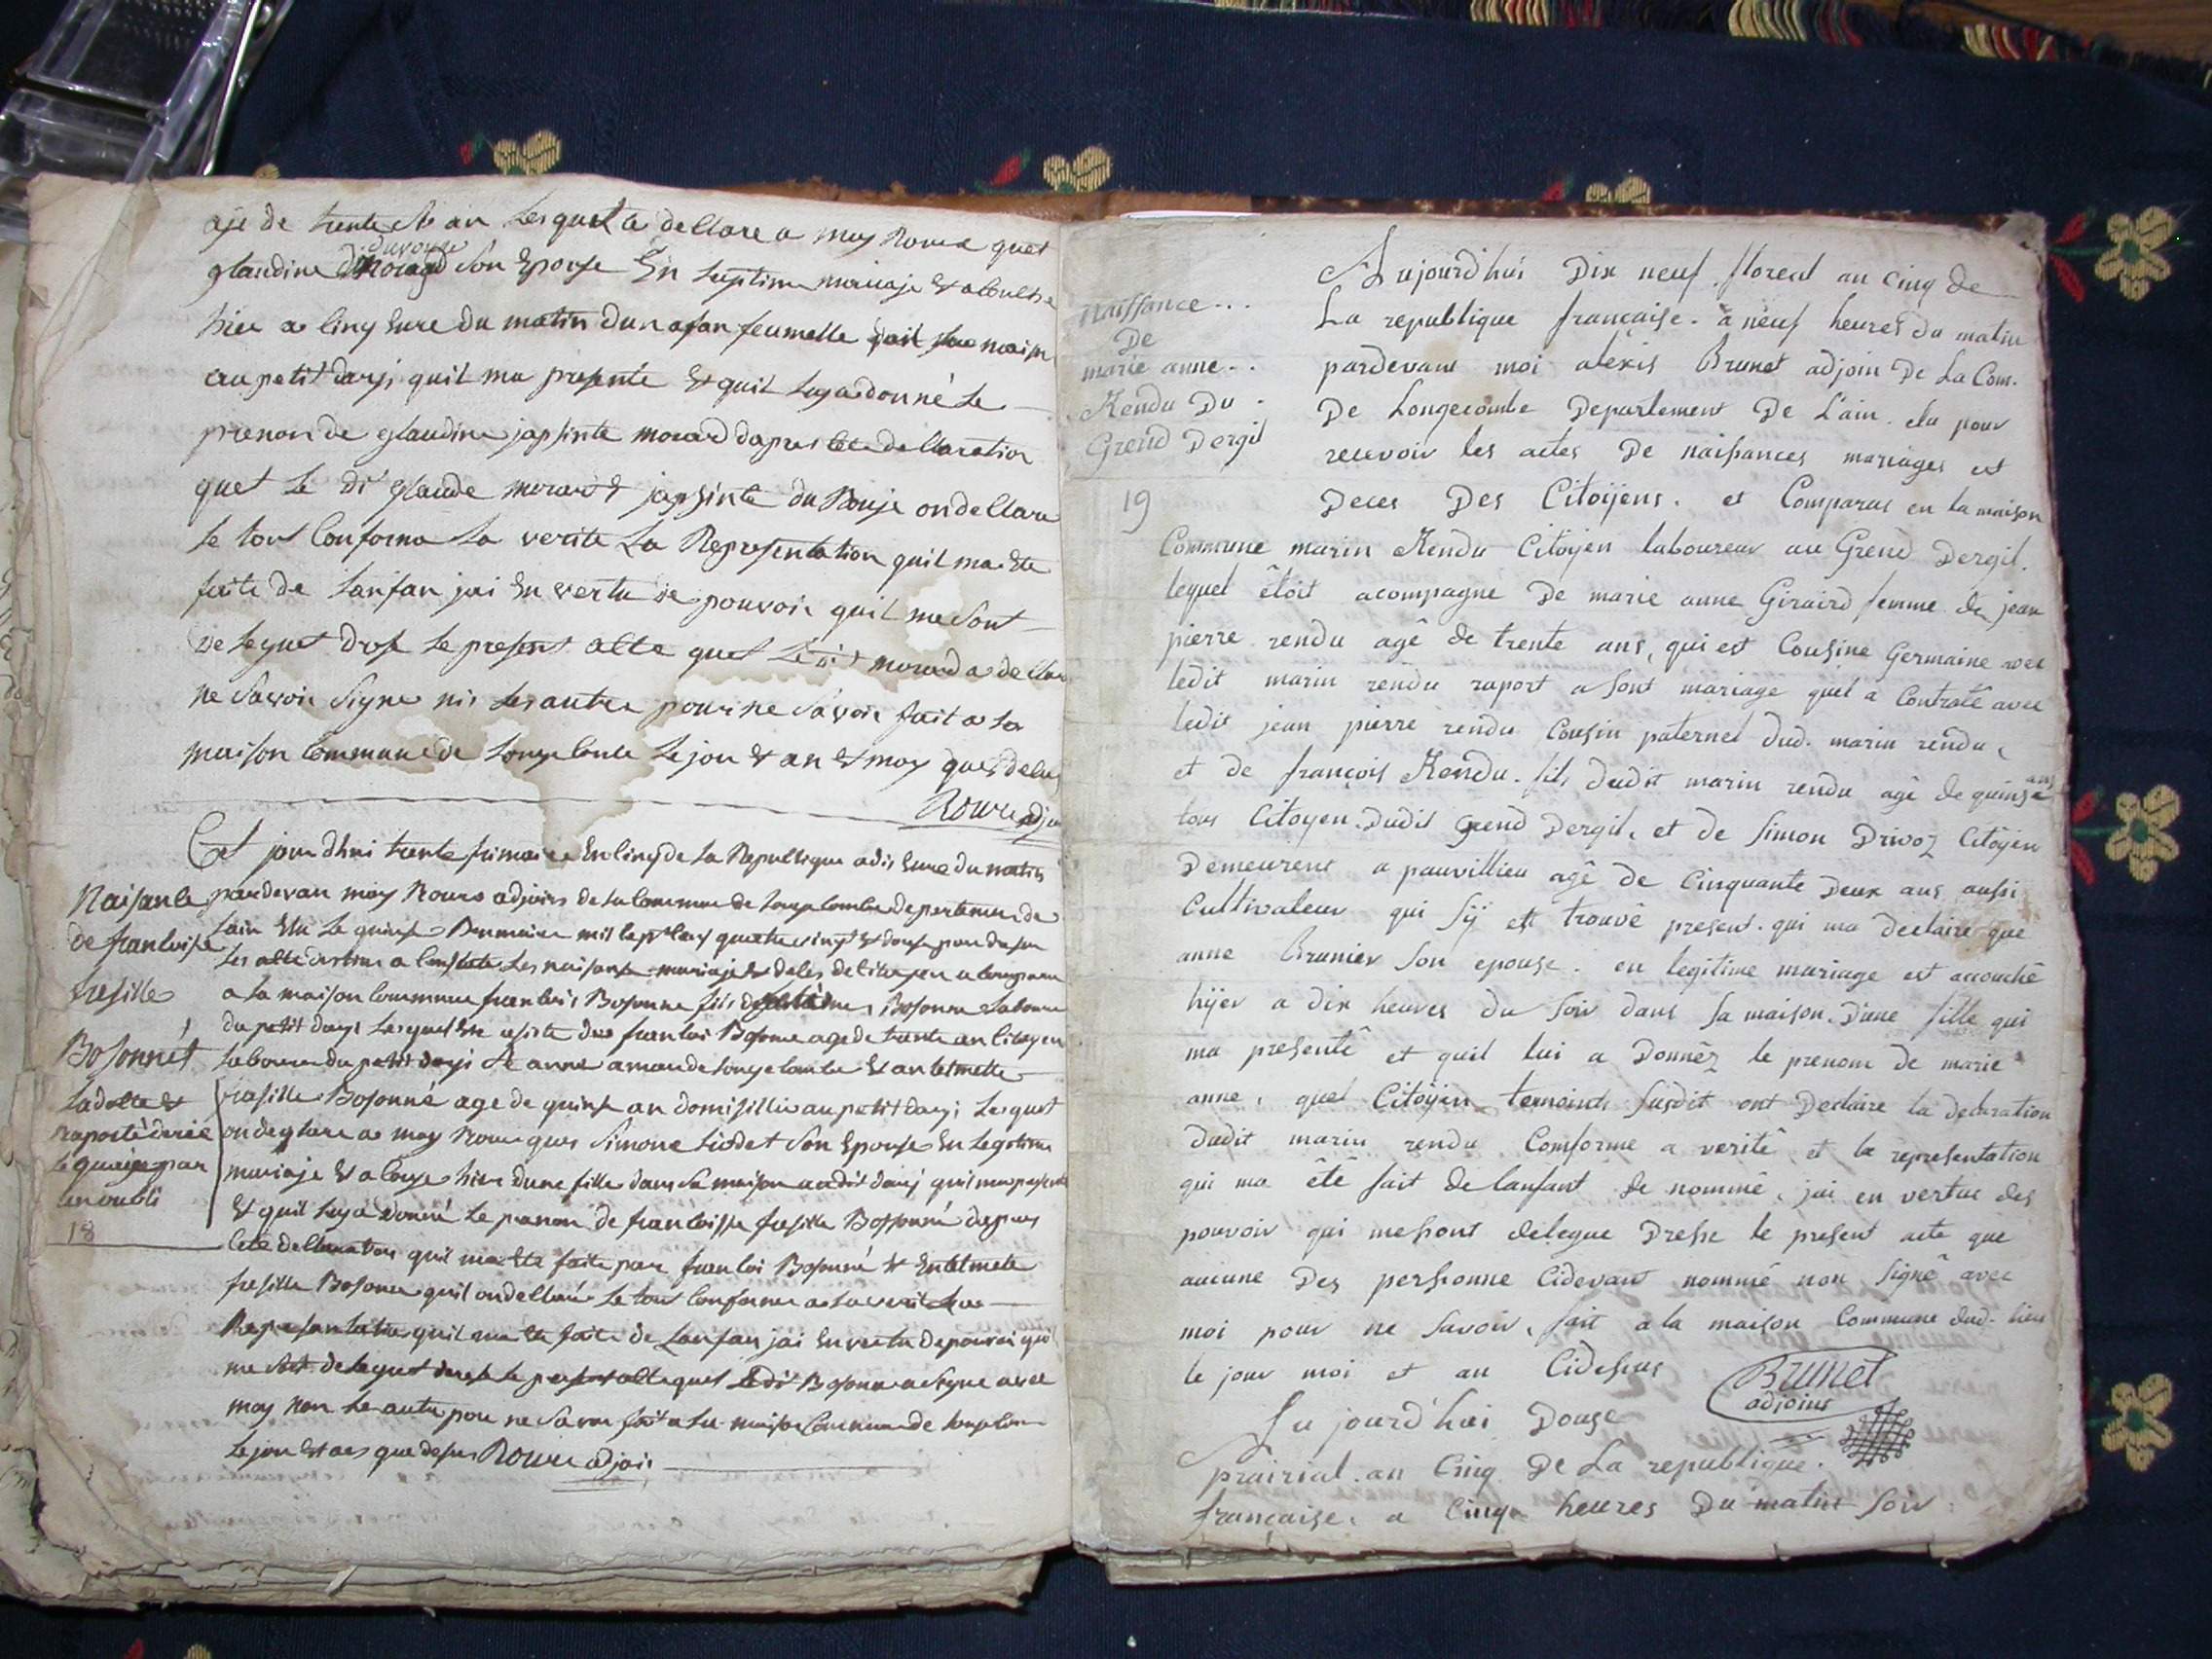 aje de trente et an lesquel a declare a moy Roux quet
glaudine duvouge son Epouse En leuptime mariaje Et acouche
hier a cinq Eure du matin dun anfan feumelle dans sa maison
au petit dargi quil ma presente Et quil luy a donné le
prenon de glaudine japsinte morard dapres cete declaration
quet le di glaude morard & japsinte du Rouje on declare
le tout Conforme la verite La Representation quil ma Ete
faite de lanfan jai En vertu de pouvoir quil me sont
delequet drese le present acte quel ledit morard a declare
ne savoir signe nis les autre pour ne savoir fait a la
maison commune de longecombe le jou & an & moy que desu
Roux adjoin
Cet jour dhui trente frimaire En cinq de la Republique a dis Eure du matin
pardevan moy Roux adjoin de la commune de longecombe departemen de
lain Elu le quinse Brumaire mil sept cens quatrevingt & douse pour dresse
les acte destine a constate les naisanse mariaje & deces de citoyen a comparu
a la maison commune francois Bosonne fils de Bosonne laboureur
du petit dargi lesquel Ete asiste de francoi Bosonne age de trente an citoyen
laboureur du petit dargi & anne aman de longecombe & antelmette
frasille Bosonné age de quinse an domisillié au petit dargi lesquet
on deglare a moy Roux que Simone Liodet son Epouse En legitime
mariaje Et acouche hier dune fille dans sa maison audit dargi quil ma presente
Et quil luy a donné le prenon de francoisse frasille Bossonné dapres
cete declaration quil ma Ete faite par francoi Bosonné & Entelmete
frasille Bosonne quil on declaré le tout conforme a la verite La
Representation quil ma Ete faite de lanfan jai En vertu de pouvoi qui
me sont delequet drese le present acte quel ledi Bosonne a signe avec
moy non les autre pour ne savoir fait a la maison commune de longecombe
le jou & an que desus Roux adjoin
Naisance
de francoise
frasille
Bosonnét
Ladatte &
raporté derié
le quaije par
len oubli
18
Naissance...
De
marie anne..
Rendu Du.
Grend Dergil
19
Aujourd'hui Dix neuf floreal an cinq de
La republique française. a neuf heures du matin
pardevant moi alexis Brunet adjoin De La Com.
De Longecombe Departement De L'ain. elu pour
recevoir les actes De naissances mariages et
Deces Des Citoÿens. et Comparus en la maison
Commune marin Rendu Citoÿen laboureur au Grend Dergil.
lequel êtoit acompagne De marie anne Giraird femme de jean
pierre rendu agê de trente ans, qui est Cousine Germaine avec
ledit marin rendu raport a sont mariage quel a Contratê avec
ledit jean pierre rendu Cousin paternel dud. marin rendu,
et de françois Rendu. fils dudit marin rendu agê de quinse ans
tous Citoyen Dudit Grend Dergil, et de Simon Drivoz Citoÿen
Demeurent a pauvillieu agê de Cinquante Deux ans aussi
Cultivateur qui sÿ est trouvê present. qui ma declaire que
anne Brunier son epouse. en legitime mariage est accouchê
hÿer a dix heures du soir dans sa maison. D'une fille qui
ma presentê et quil lui a Donnêz le prenom de marie
anne, quel Citoÿen temoints susdit ont Declaire la declaration
dudit marin rendu Comforme a veritê et la representation
qui ma êtê fait de lanfant de nommê, jai en vertue des
pouvoir qui messont delegue Dresse le present acte que
aucune Des perssonne Cidevant nommê non signê avec
moi pour ne savoir, fait a la maison Commune dud. lieu
le jour moi et an Cidessus
Brunet
adjoins
Lu jourd'hui Douse
prairial. an Cinq De La republique.
française. a Cinq heures Du matin soir